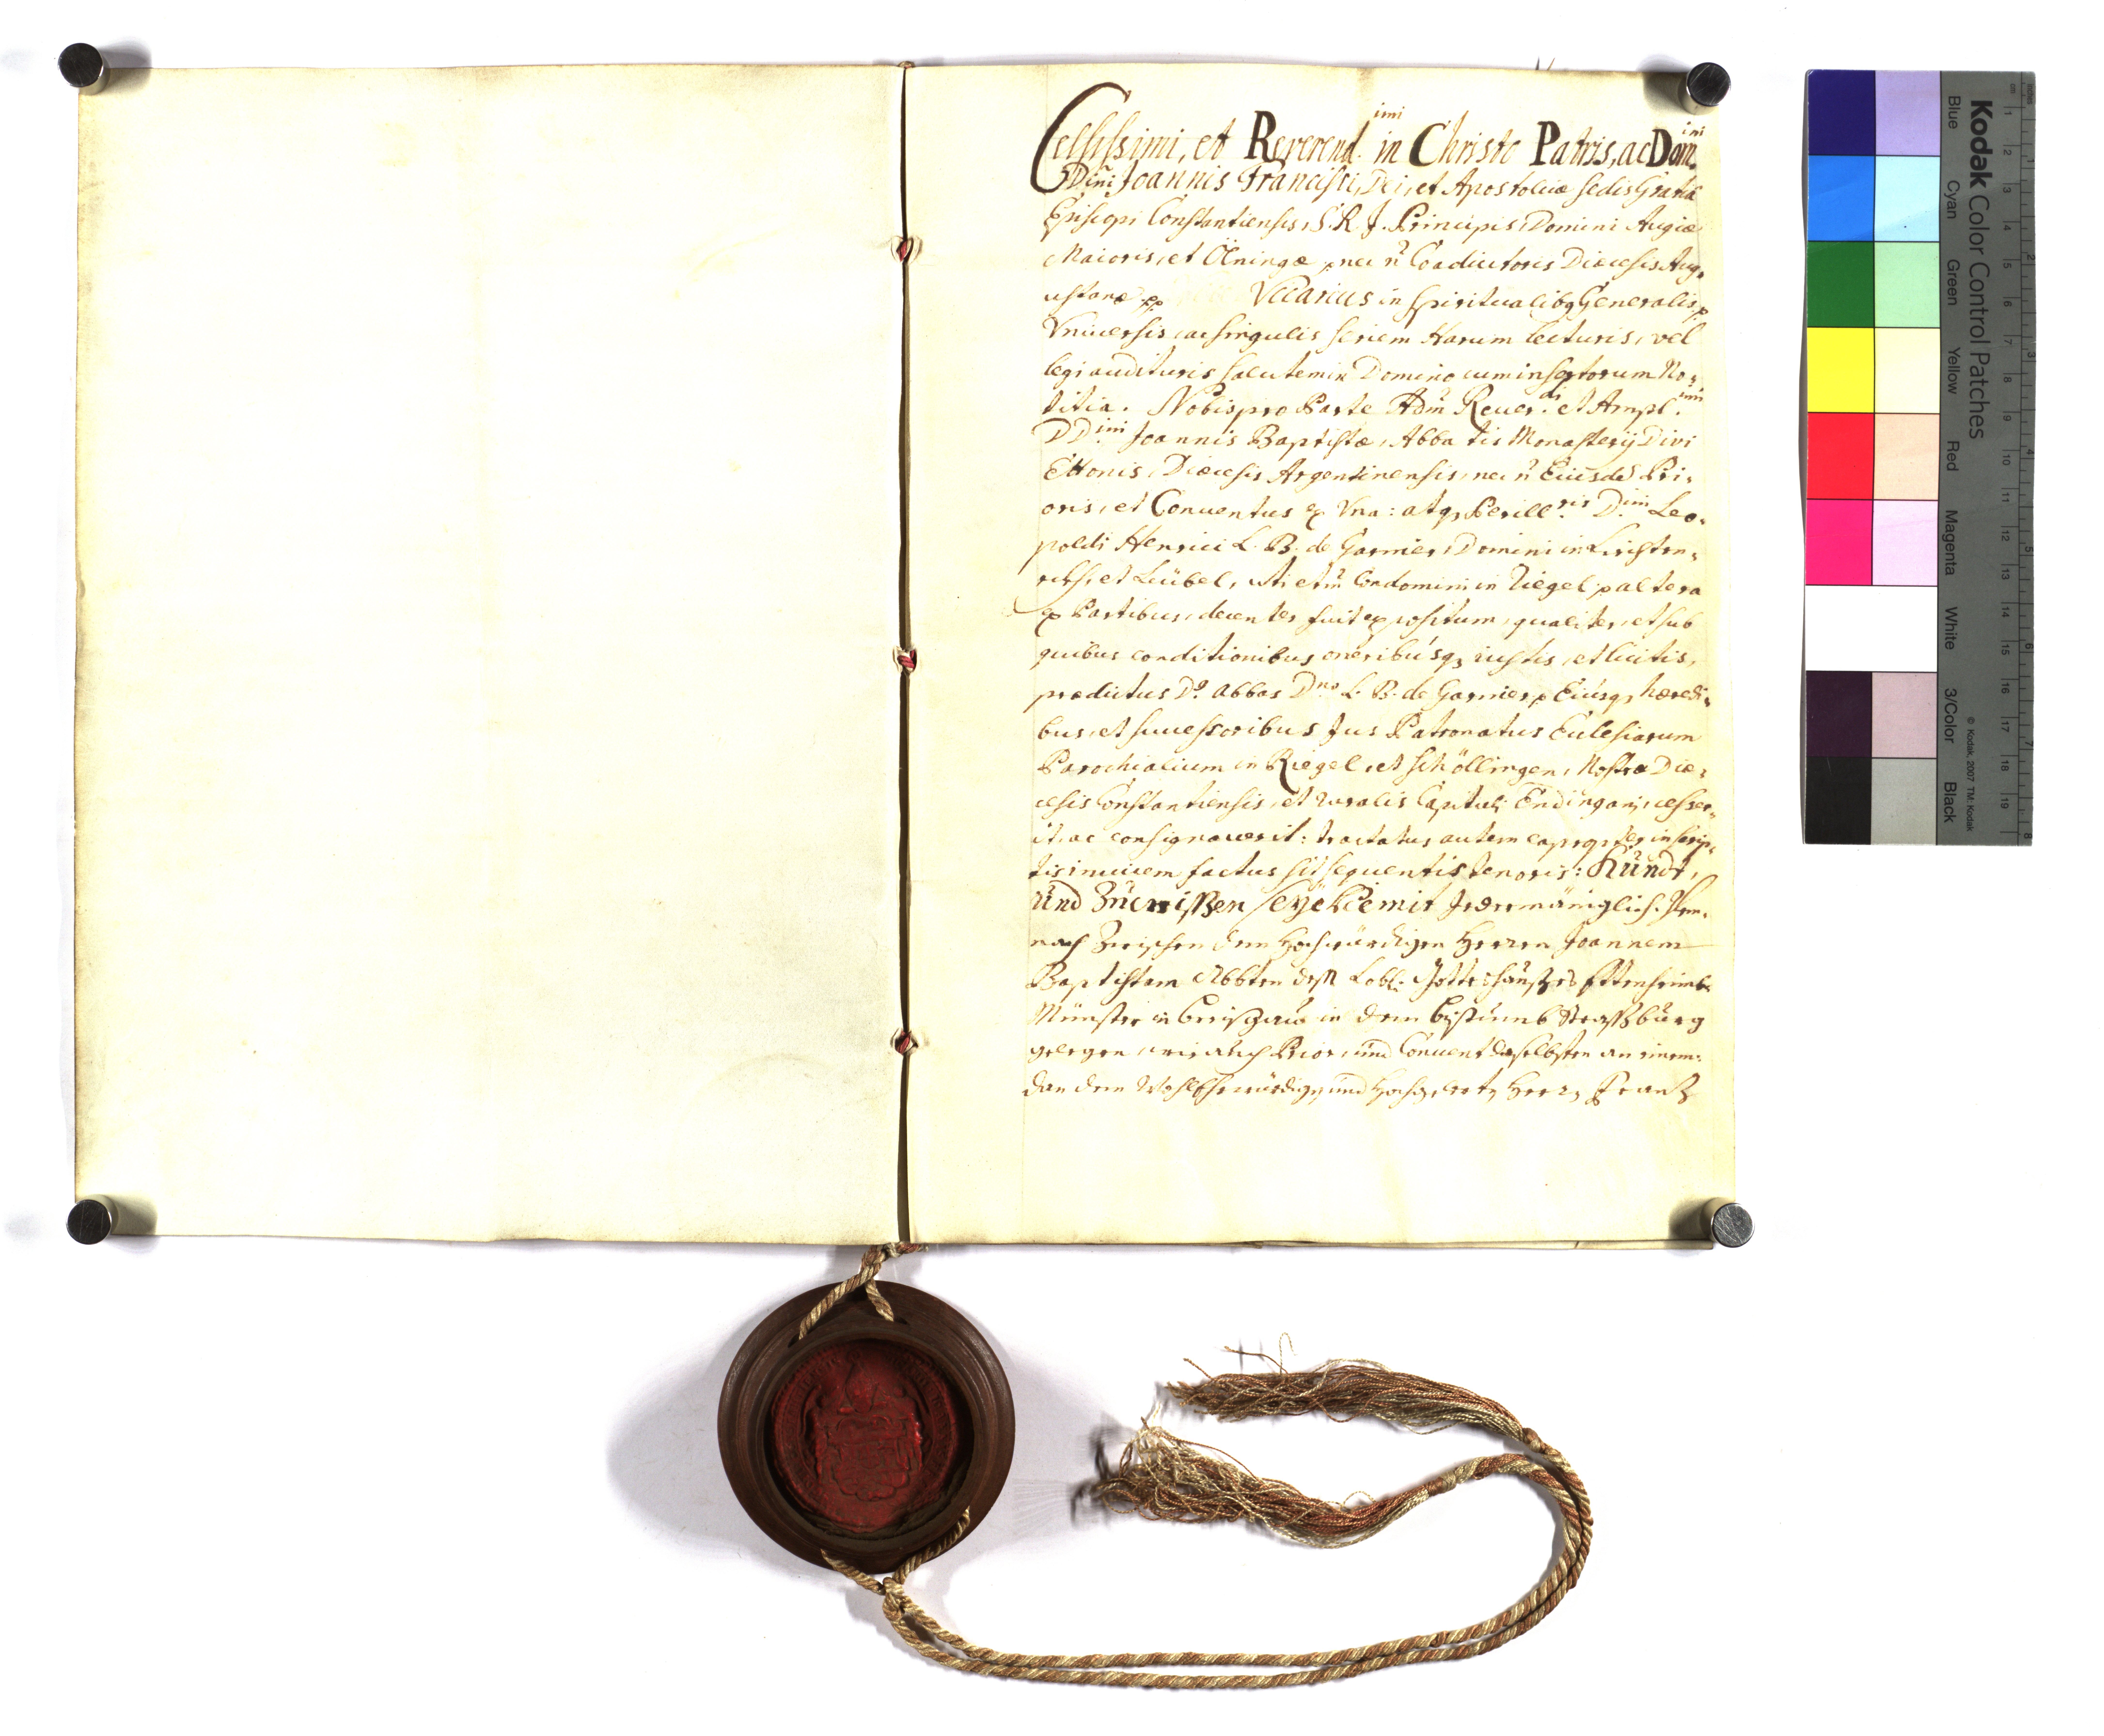 Celsissimi, et Reverend.imi in Christo Patris, ac Dom.ini
Dñi Joannis Francisci, Dei, et Apostolicæ Sedis Gratiâ
Episcopi Constantiensis, S. R. J. Principis, Domini Augiæ
Maioris, et Öhningæ p nec ñ Coadiutoris Diœcesis Aug,
ustanæ pp. Vicarius in Spiritualibq Generalis p
Vniuersis, ac singulis seriem Harum lecturis, vel
legi audituris salutem in Domino cum insertorum No,
titia. Nobis pro Parte Adm̃ Reuer.di et Ampl.imi
DD.imi Joannis Baptistæ, Abbatis Monasterij Divi
Ettonis, Diœcesis Argentinensis, nec ñ Eiusdẽ Pri,
oris, et Conuentus ex Vna: atq, Perill.ris D.imi Leo,
poldi Henrici L. B. de Garnier, Domini in
et Leübel, uti etiã Condomini in Riegel p altera
ex Partibus, decenter fuit expositum, qualiter, et sub
quibus conditionibus oneribúsq, iustis, et licitis,
prædictus D. Abbas D.no L. B. de Garnier p Eiúsq, hæredi,
bus, et successoribus Jus Patronatus Ecclesiarum
Parochialium in Riegel, et Schöllingen, Nostræ Diœ,
cesis Constantiensis, et ruralis Capituli Endingani, cesser,
it, ac consignauerit: tractatus autem ea inscrip,
tis inuicem factus sit sequentis tenoris: Kündt,
ünd Züewißen seÿe hiemit Jedermäniglich. Dem,
nach Zwischen dem Hochwürdigen Herren Joannem
Baptistam Abbten deß Lobl: Gottshaußes Ettenheimb
Münster in Breißgaüw in dem Bistumb Straßbürg
gelegen, wie auch Prior, und Conuent daselbsten an einem:
dan dem Wohlehrwürdigen und Hochgelerten Herren Frantz
Kodak Color Control Patches
Blue
Cyan
Green
Yellow
Red
Magenta
White
3/Color
Black
© Kodak, 2007 TM: Kodak